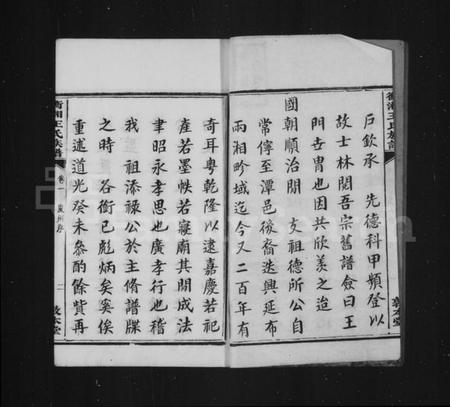 衡湘王氏族譜
敦本堂
戶欽承 先德科甲頻登以
故士林閱吾宗舊譜僉曰王
門古胄也因共欣羨之迨
國朝順治間 支祖德所公自
常儜至潭邑後裔迭興延布
兩湘畛域迄今又二百年有
奇耳粵乾隆以逮嘉慶若祀
產若墨帙若寢廟共閱成法
聿昭永孝思也廣孝行也稽
我 祖添祿公於主脩譜牒
之時 各銜已彪炳矣奚俟
重述道光癸未叅酌餘貲再
衡湘王氏族譜 卷一 序 二 敦本堂